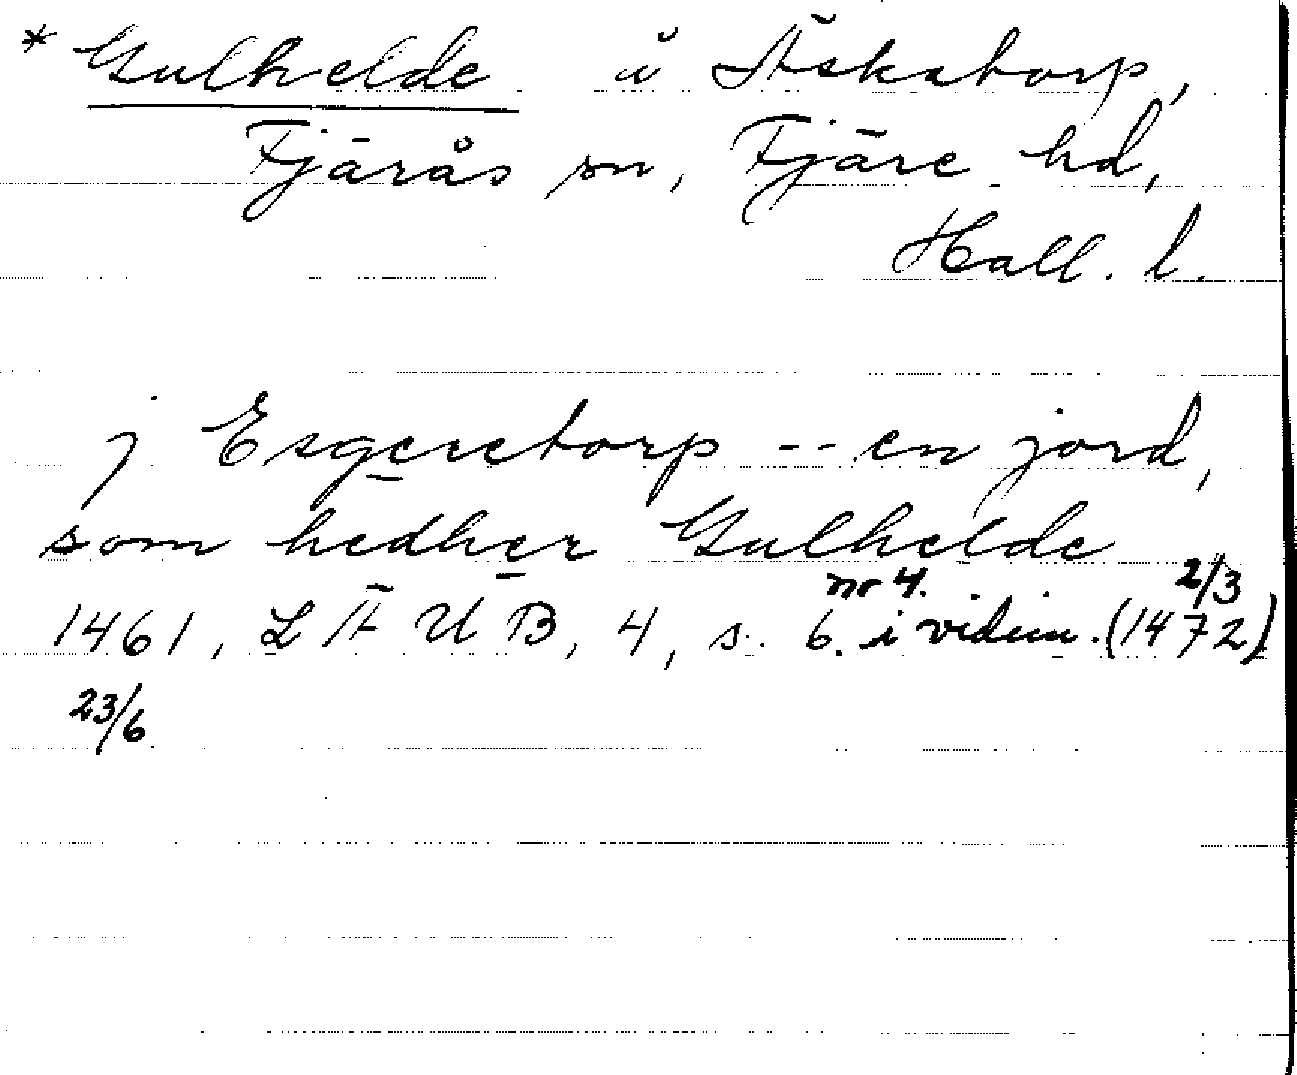 * Gulhelde å Äskatorp,
Fjärås sn, Fjäre hd,
Hall. l.
j Esgeretorp -- en jord,
som hedher Gulhelde
1461, LÄUB, 4, s. 6. nr 4. i vidim. (1472) 2/3
23/6